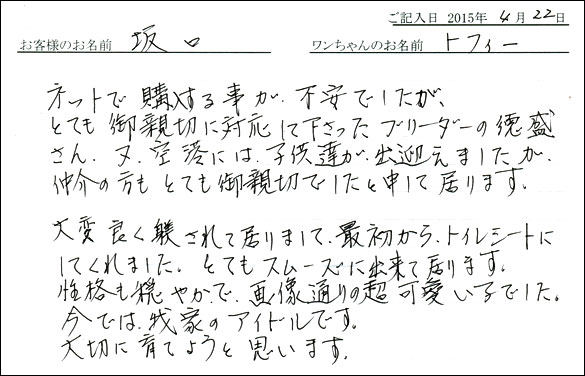 ご記入日 2015年 4月 22日
お客様のお名前 坂口 ワンちゃんのお名前 トフィー
ネットで購入する事が、不安でしたが、
とても御親切に対応して下さったブリーダーの徳盛
さん、又、空港には、子供達が、出迎えましたが、
仲介の方もとても御親切でしたと申して居ります。
大変良く躾されて居りまして、最初から、トイレシートに
してくれました。とてもスムーズに出来て居ります。
性格も穏やかで、画像通りの超可愛い子でした。
今では、我家のアイドルです。
大切に育てようと思います。